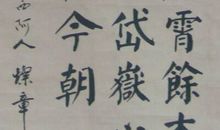 霄餘
岱嶽
今朝
西阿人燦章